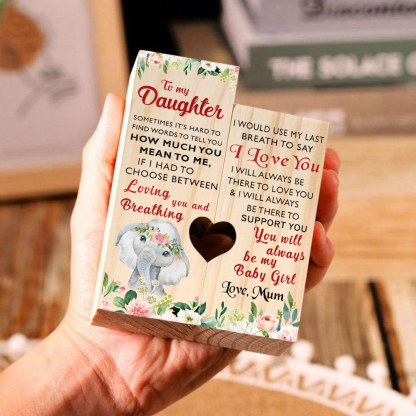 To my
Daughter
SOMETIMES IT'S HARD TO
FIND WORDS TO TELL YOU
HOW MUCH YOU
MEAN TO ME,
IF I HAD TO
CHOOSE BETWEEN
Loving you and
Breathing
I WOULD USE MY LAST
BREATH TO SAY
I Love You
I WILL ALWAYS BE
THERE TO LOVE YOU
& I WILL ALWAYS
BE THERE TO
SUPPORT YOU
You will
always
be my
Baby Girl
Love, Mum
THE SOLACE O